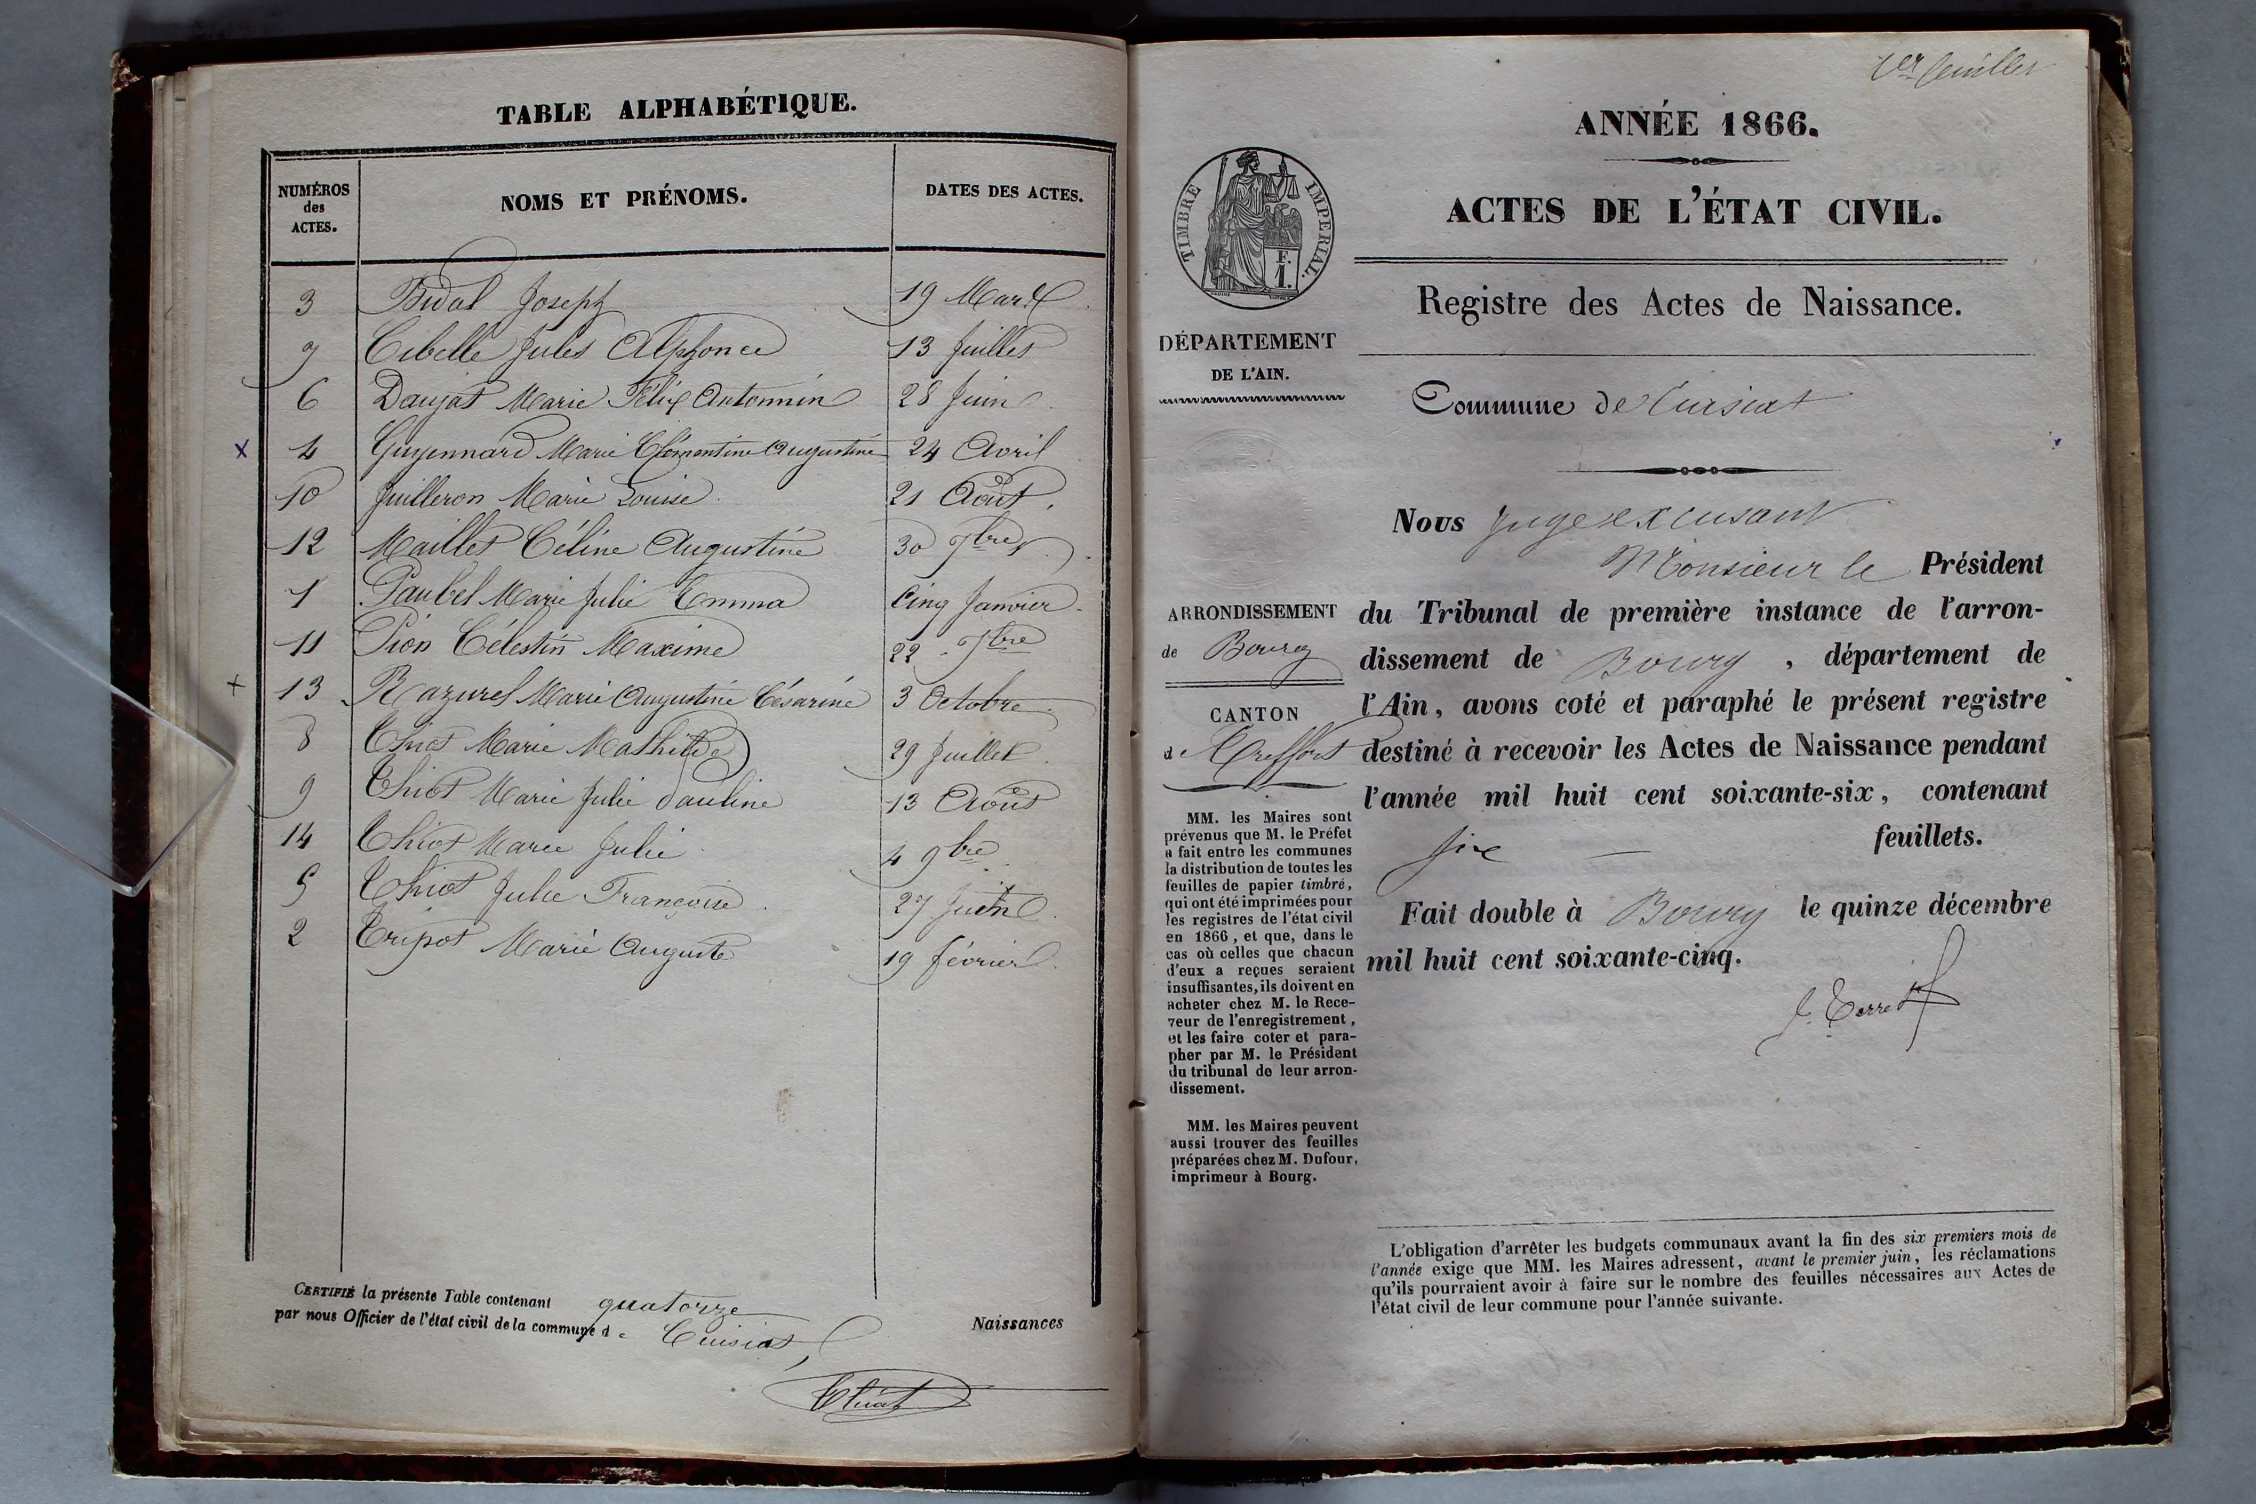 TABLE ALPHABÉTIQUE.
NUMÉROS
des
ACTES.
NOMS ET PRÉNOMS.
DATES DES ACTES.
3 Bidal Joseph 19 Mars
7 Cibelle Jules Alphonce 13 Juillet
6 Daujat Marie Félix Antonnin 28 Juin
x 4 Guyennard Marie Clémentine Augustine 24 Avril
10 Juilleron Marie Louise 21 Août
12 Maillet Céline Augustine 30 7bre
1 Paubel Marie Julie Emma Cinq Janvier
11 Pion Célestin Maxime 22 7bre
+ 13 Razurel Marie Augustine Césarine 3 Octobre
8 Thiot Marie Mathilde 29 Juillet
9 Thiot Marie Julie Pauline 13 Août
14 Thiot Marie Julie 4 9bre
5 Thiot Julie Françoise 27 Juin
2 Tripot Marie Auguste 19 février
CERTIFIÉ la présente Table contenant quatorze Naissances
par nous Officier de l'état civil de la commune de Cuisiat
Thiot
1er feuillet
ANNÉE 1866.
ACTES DE L'ÉTAT CIVIL.
Registre des Actes de Naissance.
TIMBRE IMPERIAL.
F.
1.
DÉPARTEMENT
DE L'AIN.
Commune de Cuisiat
Nous Juge excusant
Monsieur le Président
du Tribunal de première instance de l'arron-
dissement de Bourg, département de
l'Ain, avons coté et paraphé le présent registre
destiné à recevoir les Actes de Naissance pendant
l'année mil huit cent soixante-six, contenant
six feuillets.
Fait double à Bourg le quinze décembre
mil huit cent soixante-cinq.
ARRONDISSEMENT
de Bourg
CANTON
de Treffort
MM. les Maires sont
prévenus que M. le Préfet
a fait entre les communes
la distribution de toutes les
feuilles de papier timbré,
qui ont été imprimées pour
les registres de l'état civil
en 1866, et que, dans le
cas où celles que chacun
d'eux a reçues seraient
insuffisantes, ils doivent en
acheter chez M. le Rece-
veur de l'enregistrement,
et les faire coter et para-
pher par M. le Président
du tribunal de leur arron-
dissement.
MM. les Maires peuvent
aussi trouver des feuilles
préparées chez M. Dufour,
imprimeur à Bourg.
L'obligation d'arrêter les budgets communaux avant la fin des six premiers mois de
l'année exige que MM. les Maires adressent, avant le premier juin, les réclamations
qu'ils pourraient avoir à faire sur le nombre des feuilles nécessaires aux Actes de
l'état civil de leur commune pour l'année suivante.